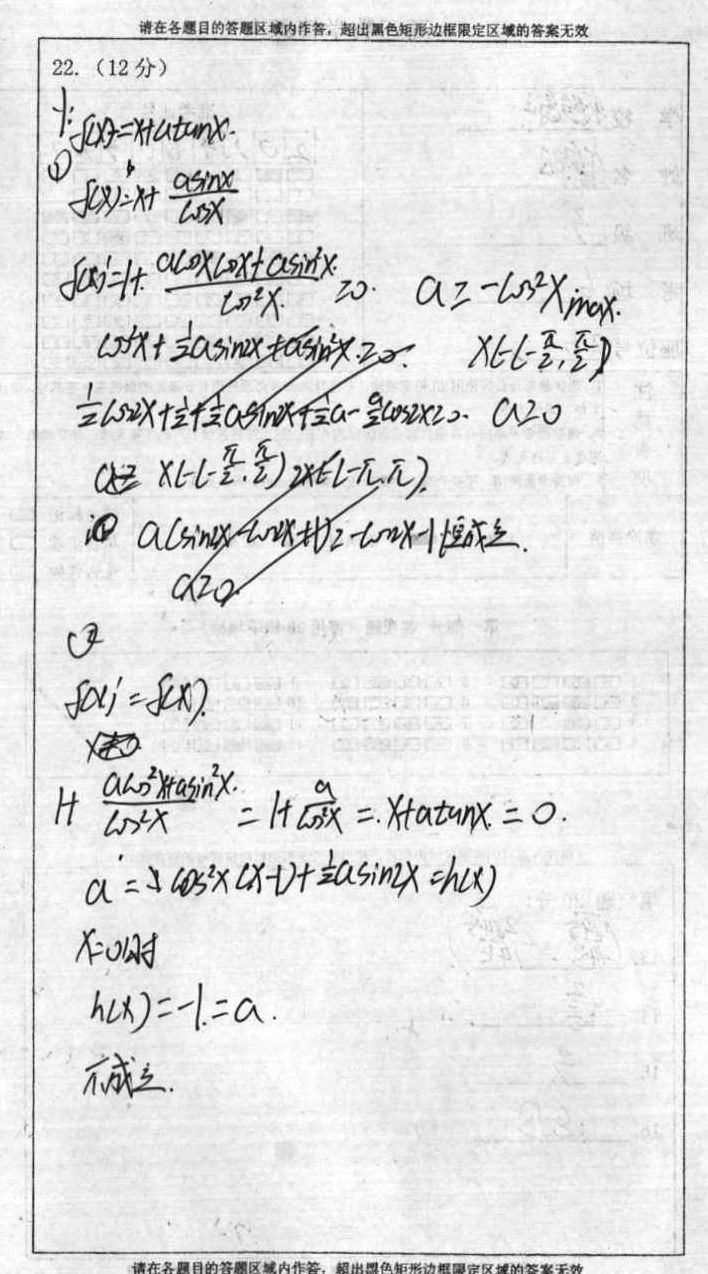 请在各题目的答题区域内作答，超出黑色矩形边框限定区域的答案无效
22.（12分）
1:
f(x)=x+atanx.
①
f(x)=x+ asinx/cosx
f(x)'=1+ (acosxcosx+asin²x)/cos²x ≥0. a≥-cos²x max.
cos²x+½asin2x+asin²x≥0. x∈(-π/2,π/2)
½cos2x+½+½asin2x+½a-a/2cos2x≥0. a≥0
a≥ x∈(-π/2,π/2) 2x∈(-π,π).
a(sin2x-cos2x+1)≥-cos2x-1恒成立.
a≥0
②
f(x)'=f(x).
1+ (acos²x+asin²x)/cos²x =1+ a/cos²x = x+atanx = 0.
a = cos²x(x-1)+½asin2x=h(x)
x=0时
h(x)=-1.=a.
不成立.
请在各题目的答题区域内作答，超出黑色矩形边框限定区域的答案无效